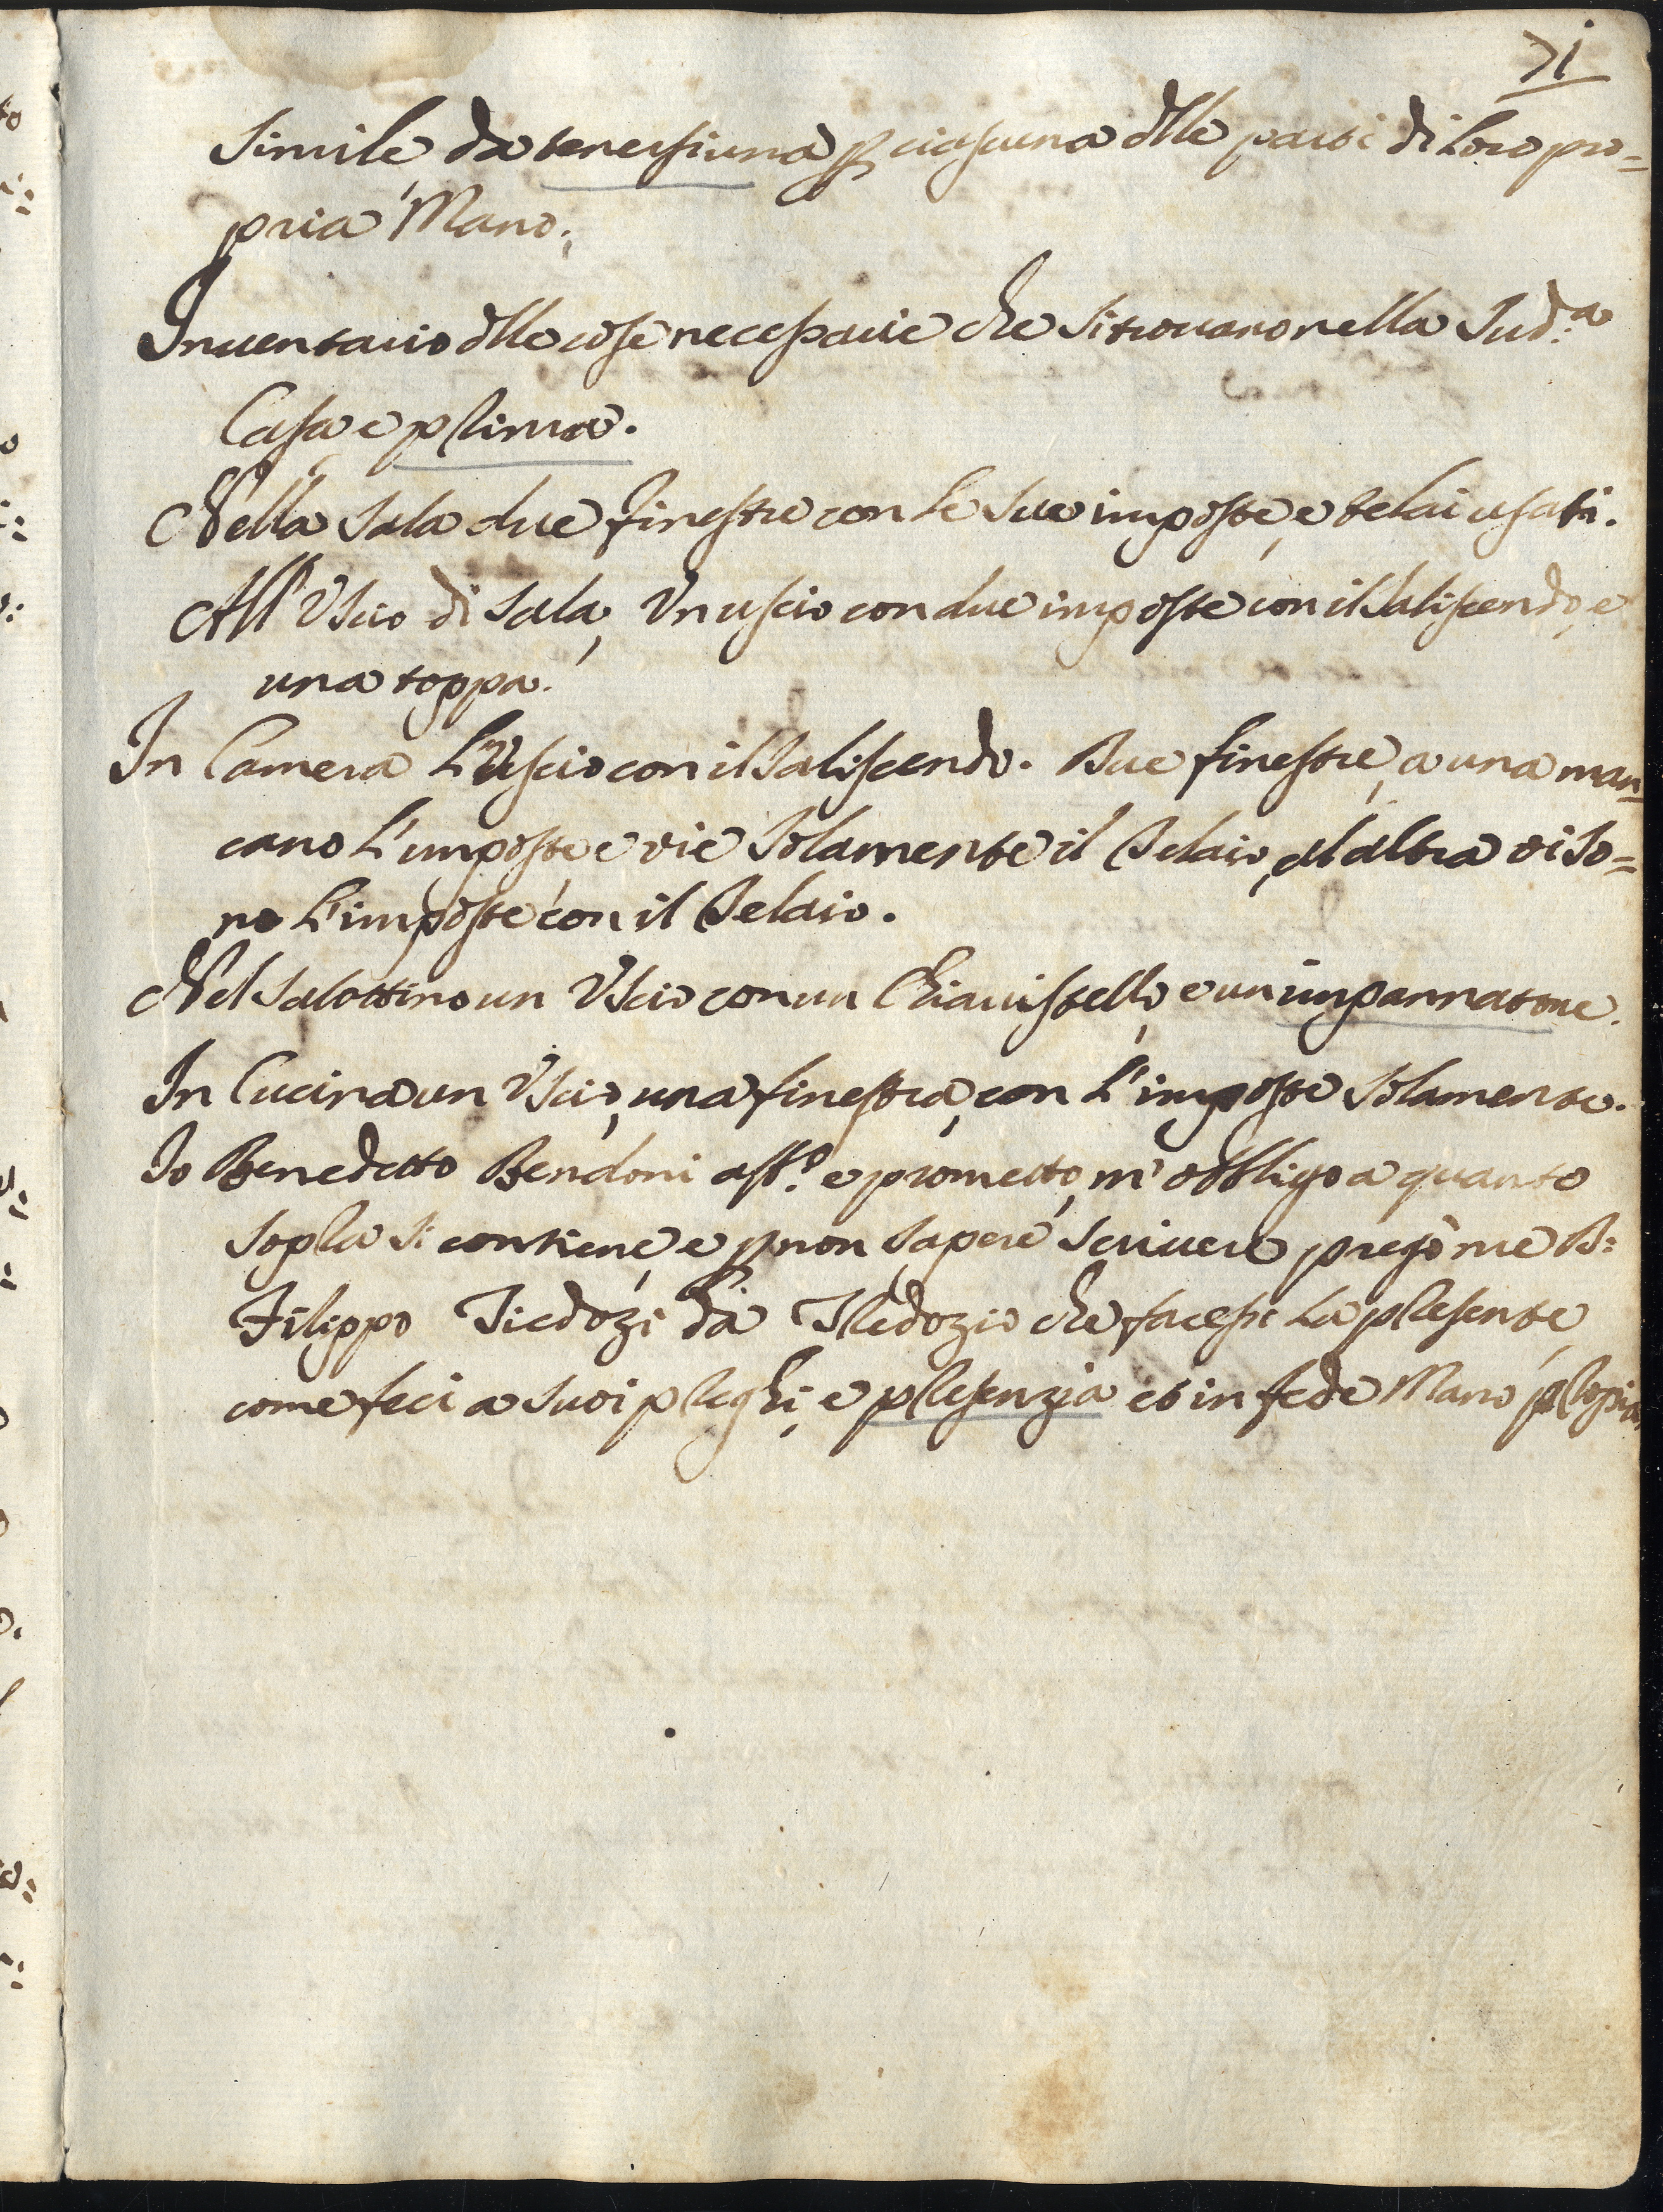 71
Simile da tenersi una p ciascuna dlle parti di Loro pro=
pria Mano;
Inuentario dlle cose necessarie che si trouano nella Sud.a
Casa e prima.
Nella Sala due finestre con le sue imposte, e telai usati.
All'Uscio di Sala, Un uscio con due imposte con il Saliscendo, e
una toppa.
In Camera L'Uscio con il Saliscendo. Due finestre, a una man=
cano L'imposte e vie Solamente il Telaio, al altra vi So=
no L'imposte con il Telaio.
Nel Salottino un Uscio con un Chiauistello, e un impannatone.
In Cucina un Uscio, una finestra, con L'imposte Solamente.
Io Benedetto Bendoni aff.o e prometto, m'obbligo a quanto
Sopra si contiene, e p non Sapere Scriuere pregò me B:
Filippo Tredozi da Tredozio che facessi La presente,
come feci a Suoi preghi, e presenzia et in fede Mano propria